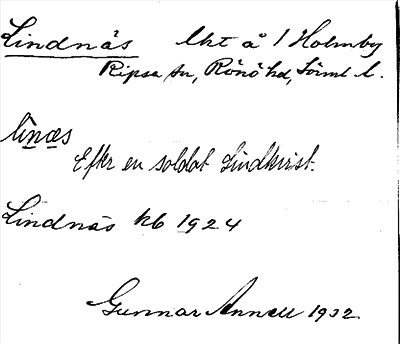 Lindnäs lht å 1 Holmby
Ripsa sn, Rönö hd, Sörml l.
linæs
Efter en soldat Lindkvist.
Lindnäs kb 1924
Gunnar Annell 1932